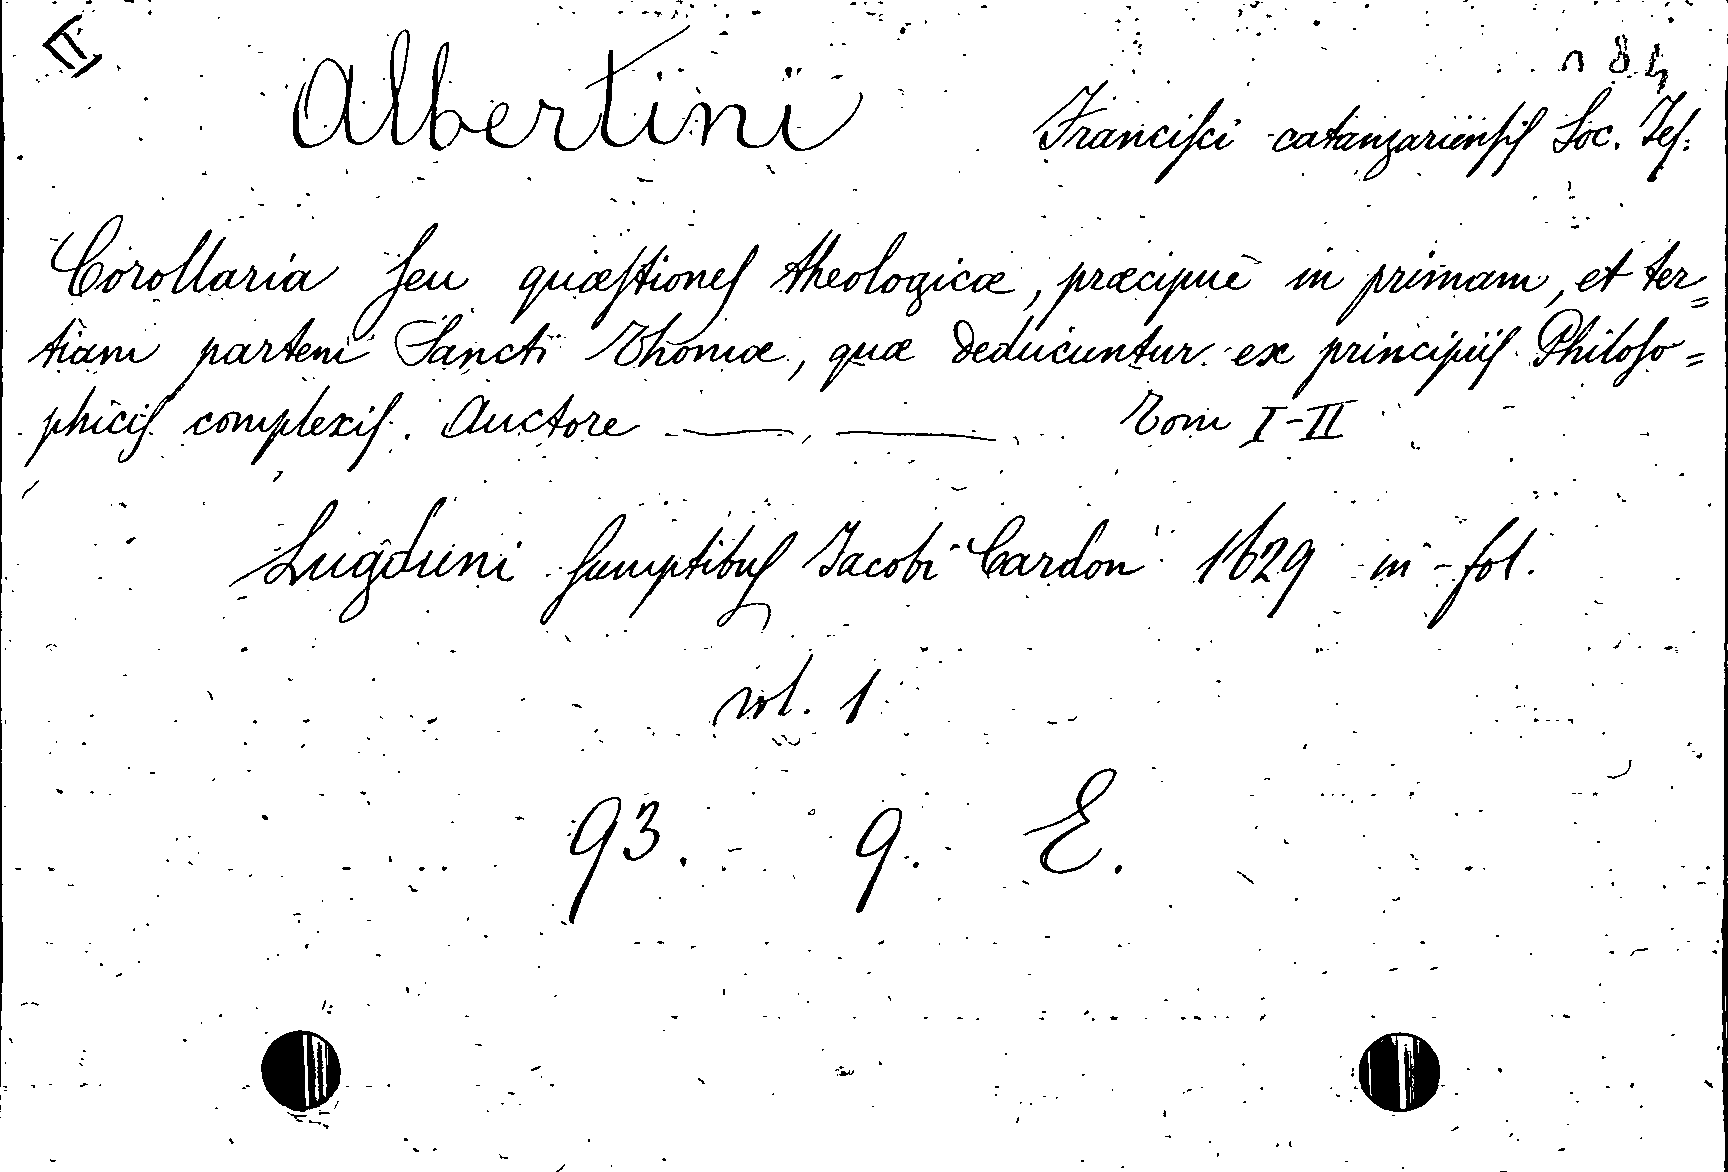 Albertini Francisci catanzariensis Soc. Jes:
Corollaria seu quæstiones theologicæ, præcipuè in primam, et ter=
tiam partem Sancti Thomæ, quæ deducuntur ex principiis Philoso=
phicis complexis. Auctore ———, ——— Tom I-II
Lugduni sumptibus Jacobi Cardon 1629 in-fol.
vol. 1
93. 9. E.